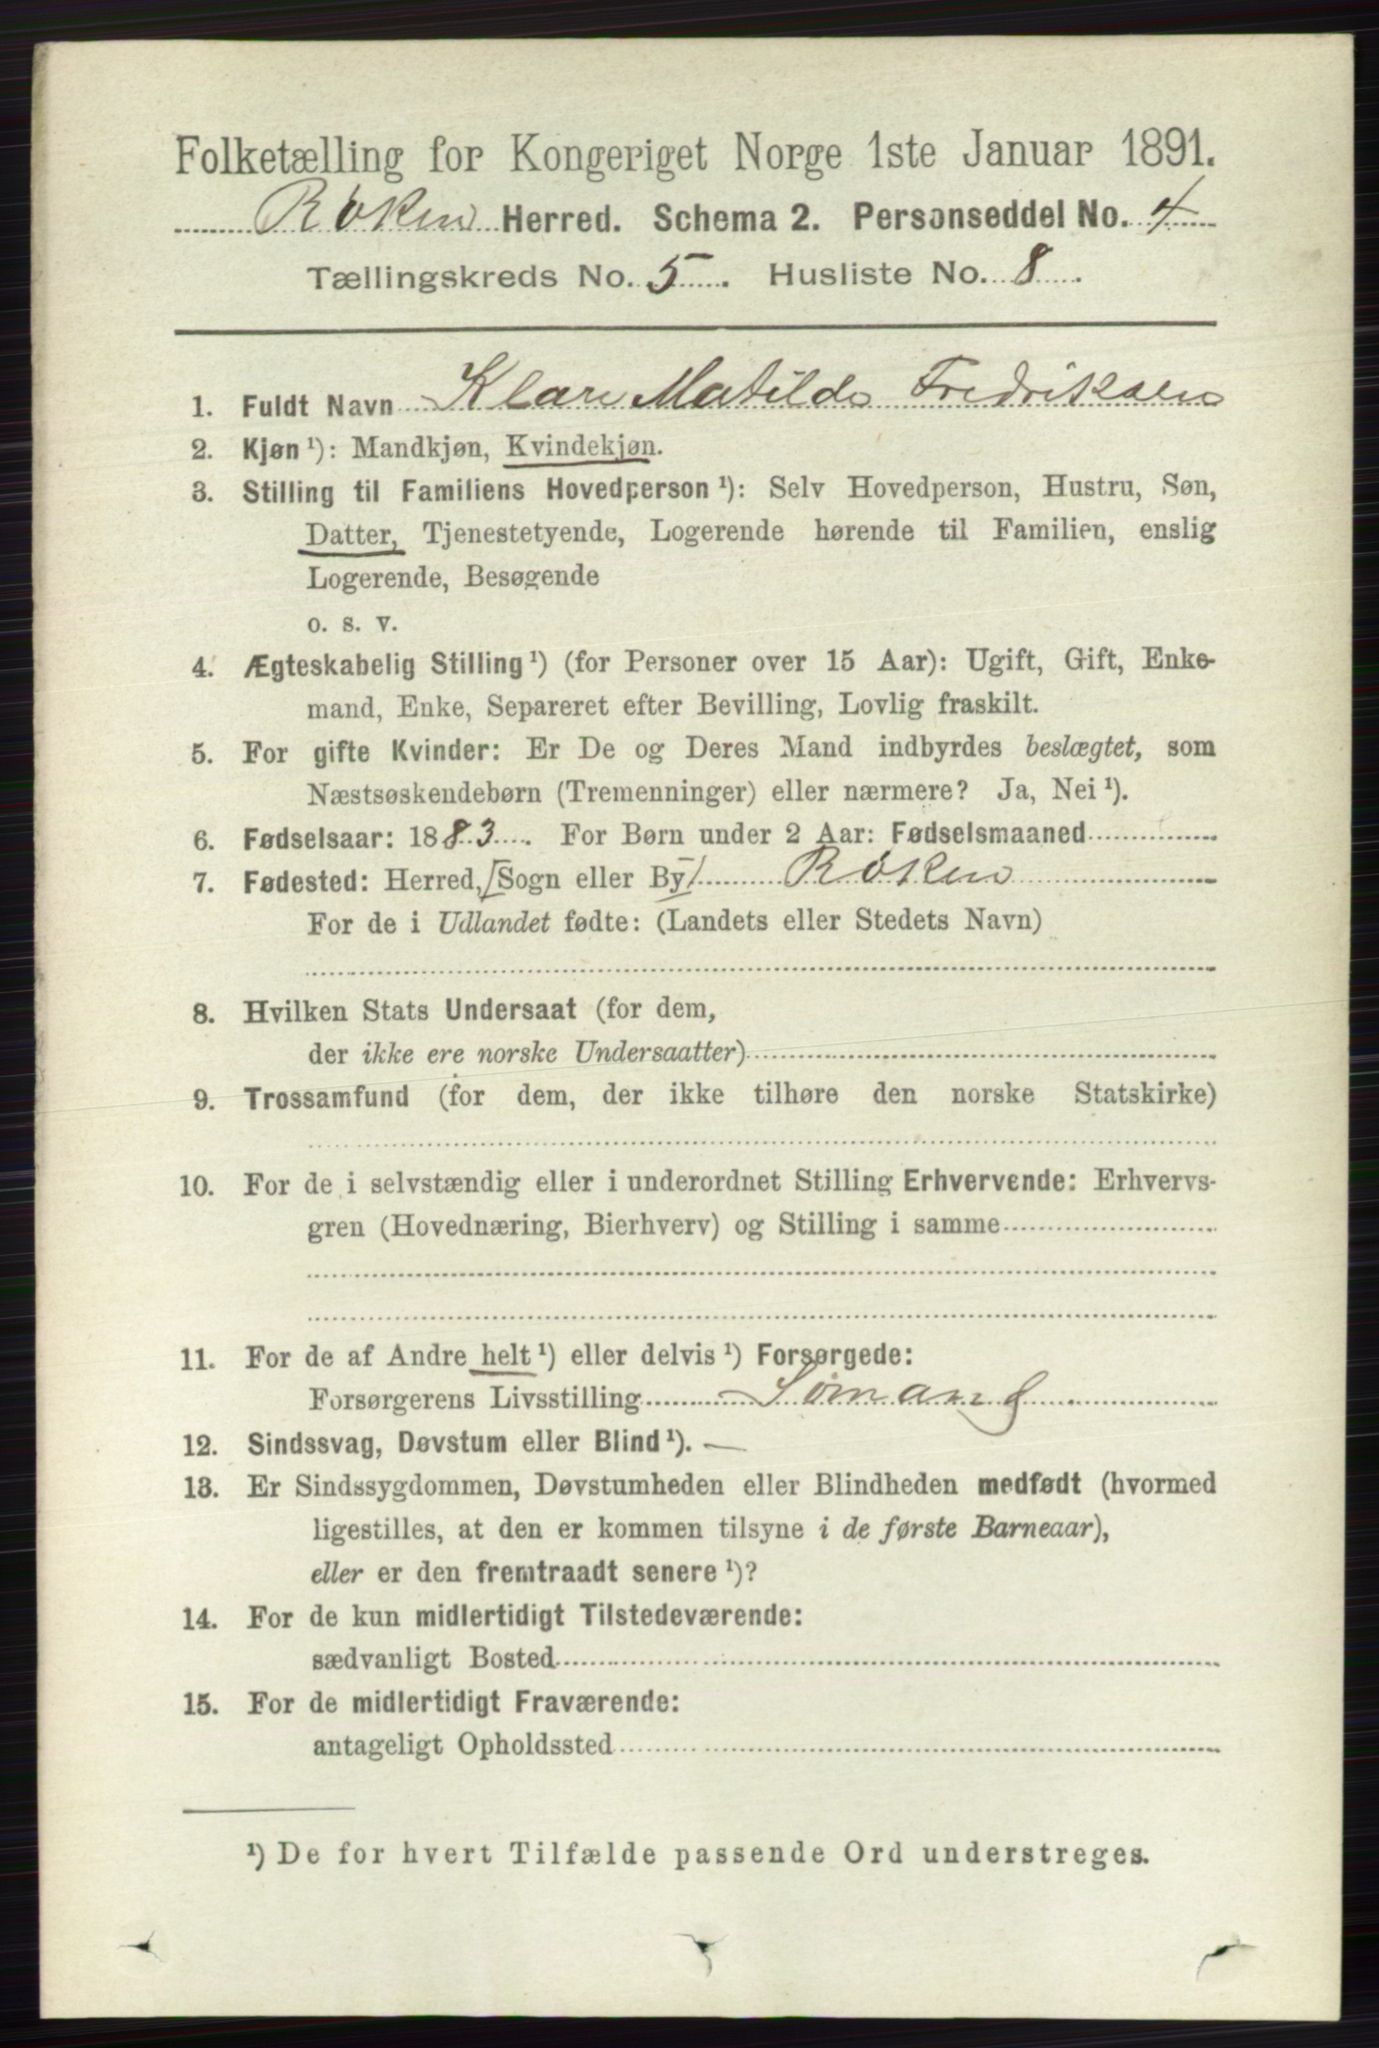 Folketælling for Kongeriget Norge 1ste Januar 1891.
Røken Herred. Schema 2. Personseddel No. 4
Tællingskreds No. 5. Husliste No. 8.
1. Fuldt Navn Klara Matilde Fredriksen
2. Kjøn ¹): Mandkjøn, Kvindekjøn.
3. Stilling til Familiens Hovedperson ¹): Selv Hovedperson, Hustru, Søn,
Datter, Tjenestetyende, Logerende hørende til Familien, enslig
Logerende, Besøgende
o. s. v.
4. Ægteskabelig Stilling ¹) (for Personer over 15 Aar): Ugift, Gift, Enke-
mand, Enke, Separeret efter Bevilling, Lovlig fraskilt.
5. For gifte Kvinder: Er De og Deres Mand indbyrdes beslægtet, som
Næstsøskendebørn (Tremenninger) eller nærmere? Ja, Nei ¹).
6. Fødselsaar: 1883. For Børn under 2 Aar: Fødselsmaaned
7. Fødested: Herred, [Sogn eller By] Røken
For de i Udlandet fødte: (Landets eller Stedets Navn)
8. Hvilken Stats Undersaat (for dem,
der ikke ere norske Undersaatter)
9. Trossamfund (for dem, der ikke tilhøre den norske Statskirke)
10. For de i selvstændig eller i underordnet Stilling Erhvervende: Erhvervs-
gren (Hovednæring, Bierhverv) og Stilling i samme
11. For de af Andre helt ¹) eller delvis ¹) Forsørgede:
Forsørgerens Livsstilling Sømand
12. Sindssvag, Døvstum eller Blind ¹). —
13. Er Sindssygdommen, Døvstumheden eller Blindheden medfødt (hvormed
ligestilles, at den er kommen tilsyne i de første Barneaar),
eller er den fremtraadt senere ¹)?
14. For de kun midlertidigt Tilstedeværende:
sædvanligt Bosted
15. For de midlertidigt Fraværende:
antageligt Opholdssted
¹) De for hvert Tilfælde passende Ord understreges.